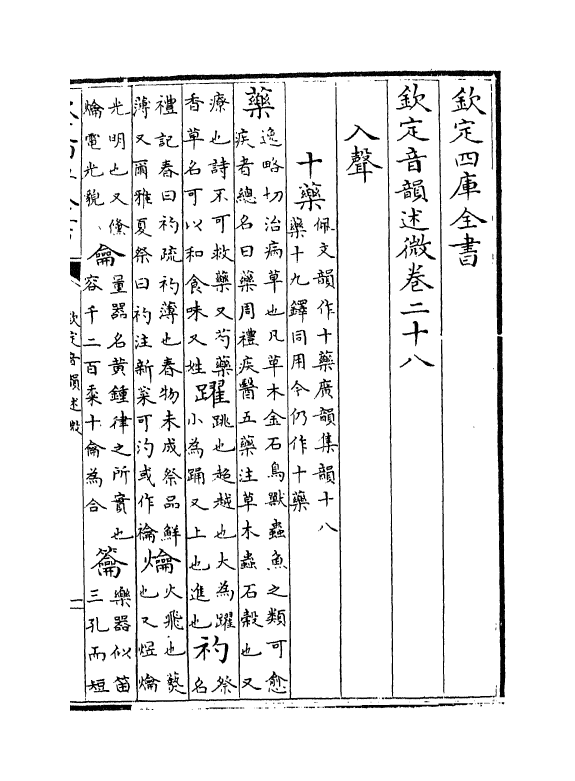 欽定四庫全書
欽定音韻述微卷二十八
入聲
十藥佩文韻作十藥廣韻集韻十八藥十九鐸同用今仍作十藥
藥逸略切治病草也凡草木金石鳥獸蟲魚之類可愈疾者總名曰藥周禮疾醫五藥注草木蟲石穀也又
療也詩不可救藥又芍藥香草名可以和食味又姓躍跳也超越也大為躍小為踊又上也進也礿祭名
禮記春曰礿疏礿薄也春物未成祭品鮮薄又爾雅夏祭曰礿注新菜可汋或作禴爚火飛也爇也又煜爚
光明也又儵爚電光貌龠量器名黃鍾律之所實也容千二百黍十龠為合籥樂器似笛三孔而短